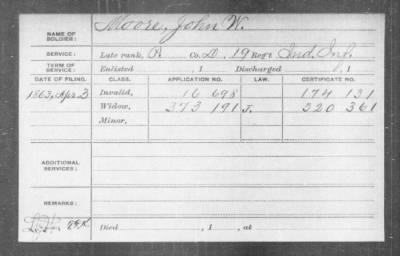 NAME OF SOLDIER: Moore, John W.
SERVICE: Late rank, P. Co. D, 19 Reg't Ind. Inf.
TERM OF SERVICE: Enlisted , 1 Discharged , 1
DATE OF FILING. CLASS. APPLICATION NO. LAW. CERTIFICATE NO.
1863, Apr. 3 Invalid, 16 698 174 131
Widow, 373 191 J. 320 361
Minor,
ADDITIONAL SERVICES:
REMARKS:
Died , 1 , at